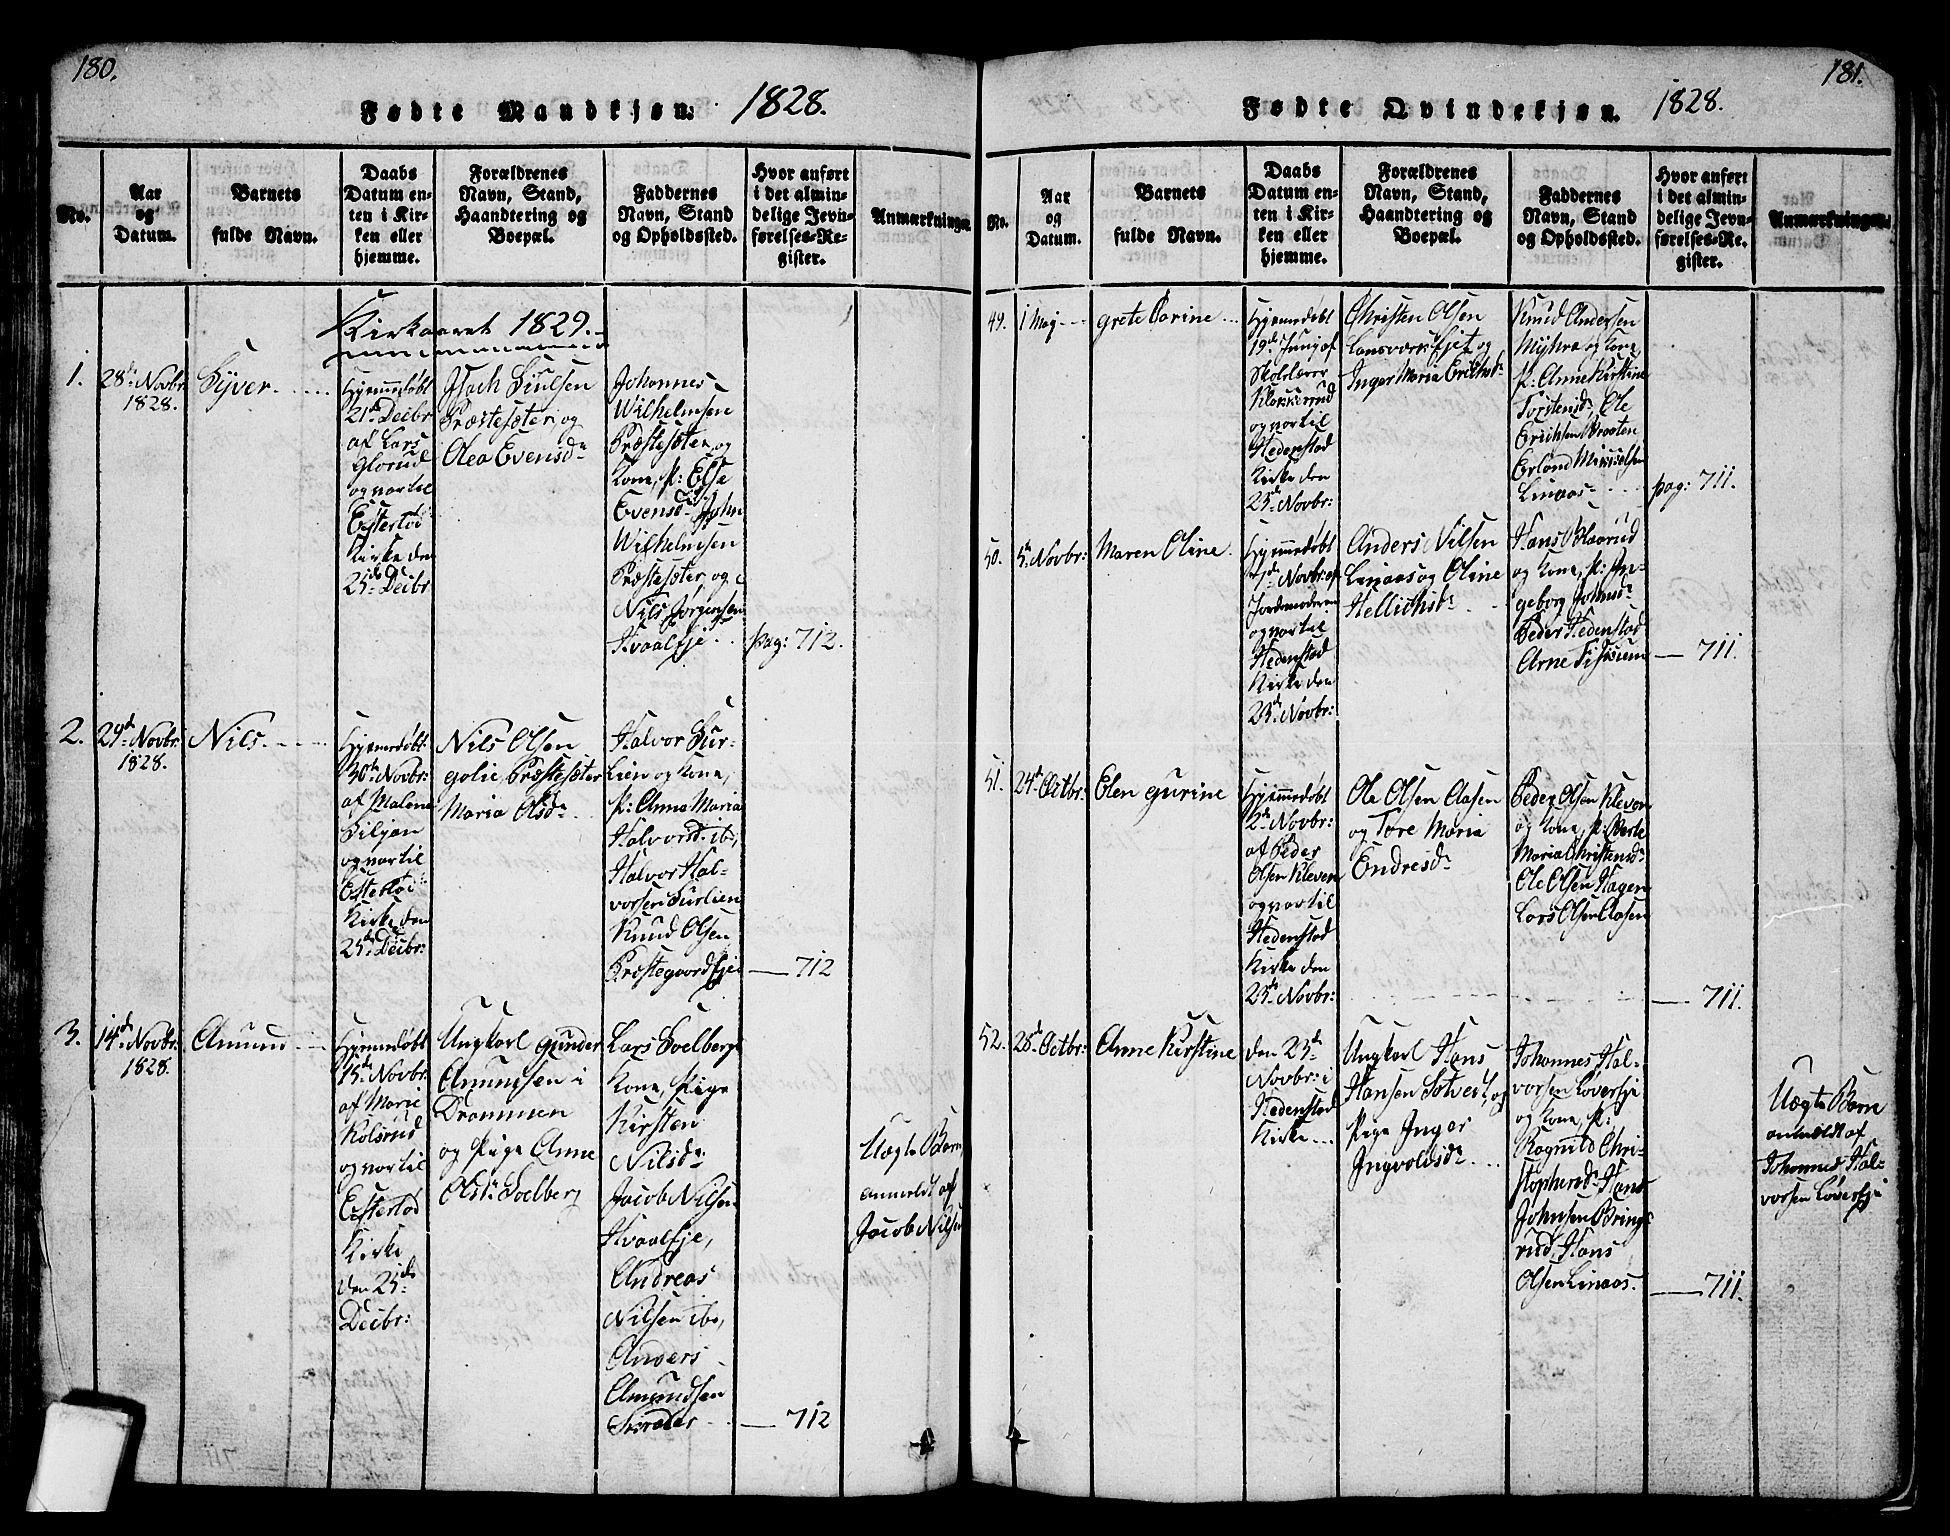 180.
Fødte Mandkjøn. 1828.
No.
Aar
og
Datum.
Barnets
fulde Navn.
Daabs
Datum en-
ten i Kir-
ken eller
hjemme.
Forældrenes
Navn, Stand,
Haandtering og
Boepæl.
Faddernes
Navn, Stand
og Opholdssted.
Hvor anført
i det almin-
delige Jevn-
førelses-Re-
gister.
Anmærkninger
Kirkaaret 1829.
1.
28de Novbr
1828.
Syver
Hjemmedøbt
21de Decbr
af Lars
Glorud
og var til
Eftelød
Kirke den
25de Decbr
Isach Siulsen
Præstesæter, og
Olea Evensdr
Johannes
Wilhelmsen
Præstesæter, og
Kone, P: Else
Evensdr John
Wilhelmsen
Præstesæter, og
Nils Jørgensen
Hvaaleje
pag: 712.
2.
29de Novbr:
1828.
Nils
Hjemmedøbt
30te Novbr:
af Malene
Siljan
og var til
Eftelød
Kirke den
25de Decbr:
Nils Olsen
golie Præstesæter
Maria Olsdr
Halvor Sur-
lien og Kone,
P: Anna Maria
Halvorsdr ibd,
Halvor Hal-
vorsen Surlien
Knud Olsen
Præstegaardseje
— 712
3.
14de Novbr:
1828.
Amund
Hjemmedøbt
15de Novbr:
af Marie
Kolsrud
og var til
Eftelød
Kirke
den 25de
Decbr:
Ungkarl Gunder
Amundsen i
Drammen
og Pige Anne
Olsdr Solberg
Lars Solbergs
Kone, Pige
Kirsten
Nilsdr
Jacob Nilsen
Hvaaleje,
Andreas
Nilsen ibd,
Anders
Amundsen
— 712
Uægte Barn
anmeldt af
Jacob Nilsen
181.
Fødte Qvindekjøn. 1828.
No.
Aar
og
Datum.
Barnets
fulde Navn.
Daabs
Datum en-
ten i Kir-
ken eller
hjemme.
Forældrenes
Navn, Stand,
Haandtering og
Boepæl.
Faddernes
Navn, Stand
og Opholdssted.
Hvor anført
i det almin-
delige Jevn-
førelses-Re-
gister.
Anmærkninger.
49.
1 Maj
Grete Karine
Hjemmedøbt
19de Junj af
Skolelærer
Klokkerud
og var til
Hedenstad
Kirke den
23de Novbr:
Christen Olsen
Lansværksejet og
Inger Maria Erichsdr
Knud Andersen
Myhra og Kone,
P: Anne Kirstine
Torstensdr, Ole
Erichsen Braaten
Erland Mikkelsen
Linaas
pag: 711.
50.
5te Novbr:
Maren Oline
Hjemmedøbt
7de Novbr: af
Jordemoderen
og var til
Hedenstad
Kirke den
23de Novbr:
Anders Nilsen
Linaas og Oline
Hellichsdr
Hans Blaarud
og Kone, P: In-
geborg Johnsdr
Peder Hedenstad
Arne Tistrum
— 711.
51.
24de Octbr:
Elen Gurine
Hjemmedøbt
2de Novbr:
af Peder
Olsen Kleven
og var til
Hedenstad
Kirke den
23de Novbr:
Ole Olsen Aasen
og Tore Maria
Endresdr
Peder Olsen Kleven
og Kone, P: Berte
Maria Christensdr
Ole Olsen Hagen
Lars Olsen Aasen
— 711.
52.
28de Octbr:
Anne Kirstine
den 23de
Novbr: i
Hedenstad
Kirke
Ungkarl Hans
Hansen Sotvedt, og
Pige Inger
Ingvoldsdr
Johannes Hal-
vorsen Løverseje
og Kone, P:
Ragnild Chri-
stophersdr Hans
Johnsen Brings-
rud, Hans
Olsen Linaas.
— 711.
Uægte Barn
anmeldt af
Johannes Hal-
vorsen Løverseje